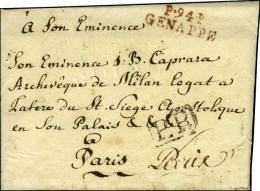 À Son Eminence
P.94.P.
GENAPPE
Son Eminence J. B. Caprara
Archevêque de Milan Legat a
Latere du St. Siege Apostolique
en Son Palais &
P.P.
à
Paris Paris